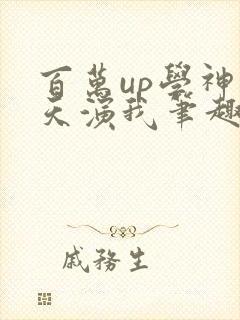 百萬up學神
天演我筆趣
戚務生